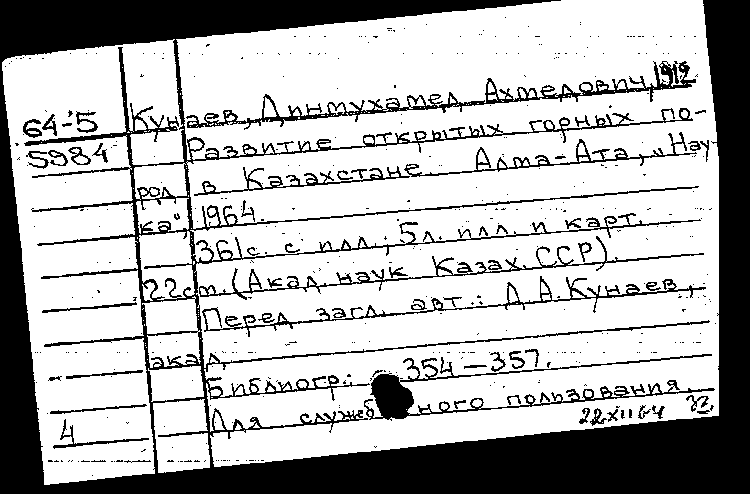 64-5
5984
Кунаев, Динмухамед Ахмедович, 1912
Развитие открытых горных по-
род в Казахстане. Алма-Ата, "Нау-
ка", 1964.
361с. с илл.; 5л. илл. и карт.
22см. (Акад. наук Казах. ССР).
Перед загл. авт.: Д. А. Кунаев,
акад.
Библиогр.: 354-357.
Для служебного пользования.
4
22 XII 64